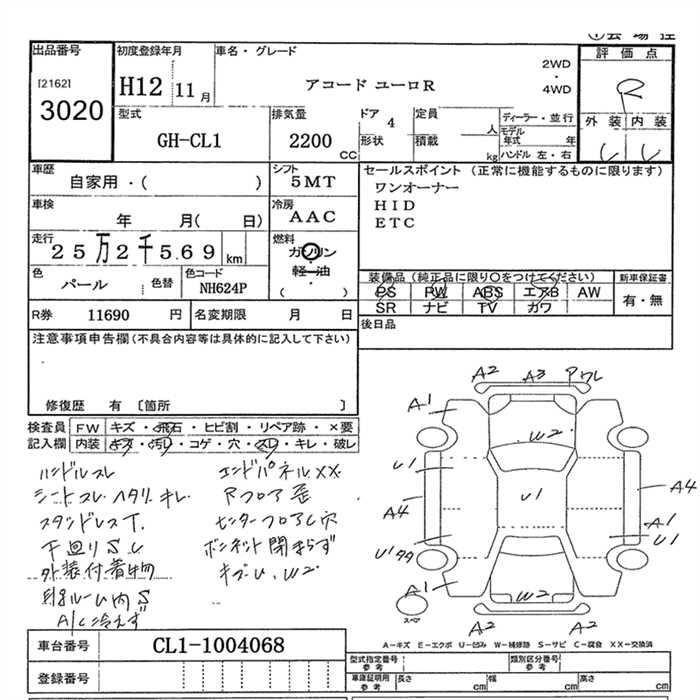 出品番号
[2162]
3020
初度登録年月
H12 11月
車名・グレード
アコード ユーロR
2WD
・
4WD
評価点
R
外装 内装
型式
GH-CL1
排気量
2200
CC
ドア 4
形状
定員
人
積載
kg
ディーラー・並行
モデル
年式 年
ハンドル 左・右
車歴
自家用・( )
シフト
5MT
セールスポイント (正常に機能するものに限ります)
ワンオーナー
HID
ETC
車検
年 月( 日)
冷房
AAC
走行
25万2千569 km
燃料
ガソリン
・
軽油
・
( )
色
パール
色替
色コード
NH624P
装備品(純正品に限り○をつけてください)
新車保証書
PS PW ABS エアB AW
SR ナビ TV カワ
有・無
R券 11690 円
名変期限 月 日
後日品
注意事項申告欄(不具合内容等は具体的に記入して下さい)
修復歴 有 〔箇所 〕
検査員
記入欄
FW キズ・飛石・ヒビ割・リペア跡・×要
内装 キズ・汚レ・コゲ・穴・スレ・キレ・破レ
ハンドルスレ
シートスレ ヘタリ キレ
スタンドレスT.
下廻りS.C
外装付着物
ルーム内S
A/C冷えず
エンドパネルXX.
Rフロア歪
センターフロアC穴
ボンネット閉まらず
キズU.W2.
A2 A3 Pワレ
A1
W2
U1
U1
A4
A4
A1
U1
U1
A1
W2
A2
A2
スペア
A-キズ E-エクボ U-凹み W-補修跡 S-サビ C-腐食 XX-交換済
車台番号
CL1-1004068
登録番号
型式指定番号
参考
類別区分番号
参考
車庫証明用
参考
長さ cm
幅 cm
高さ cm